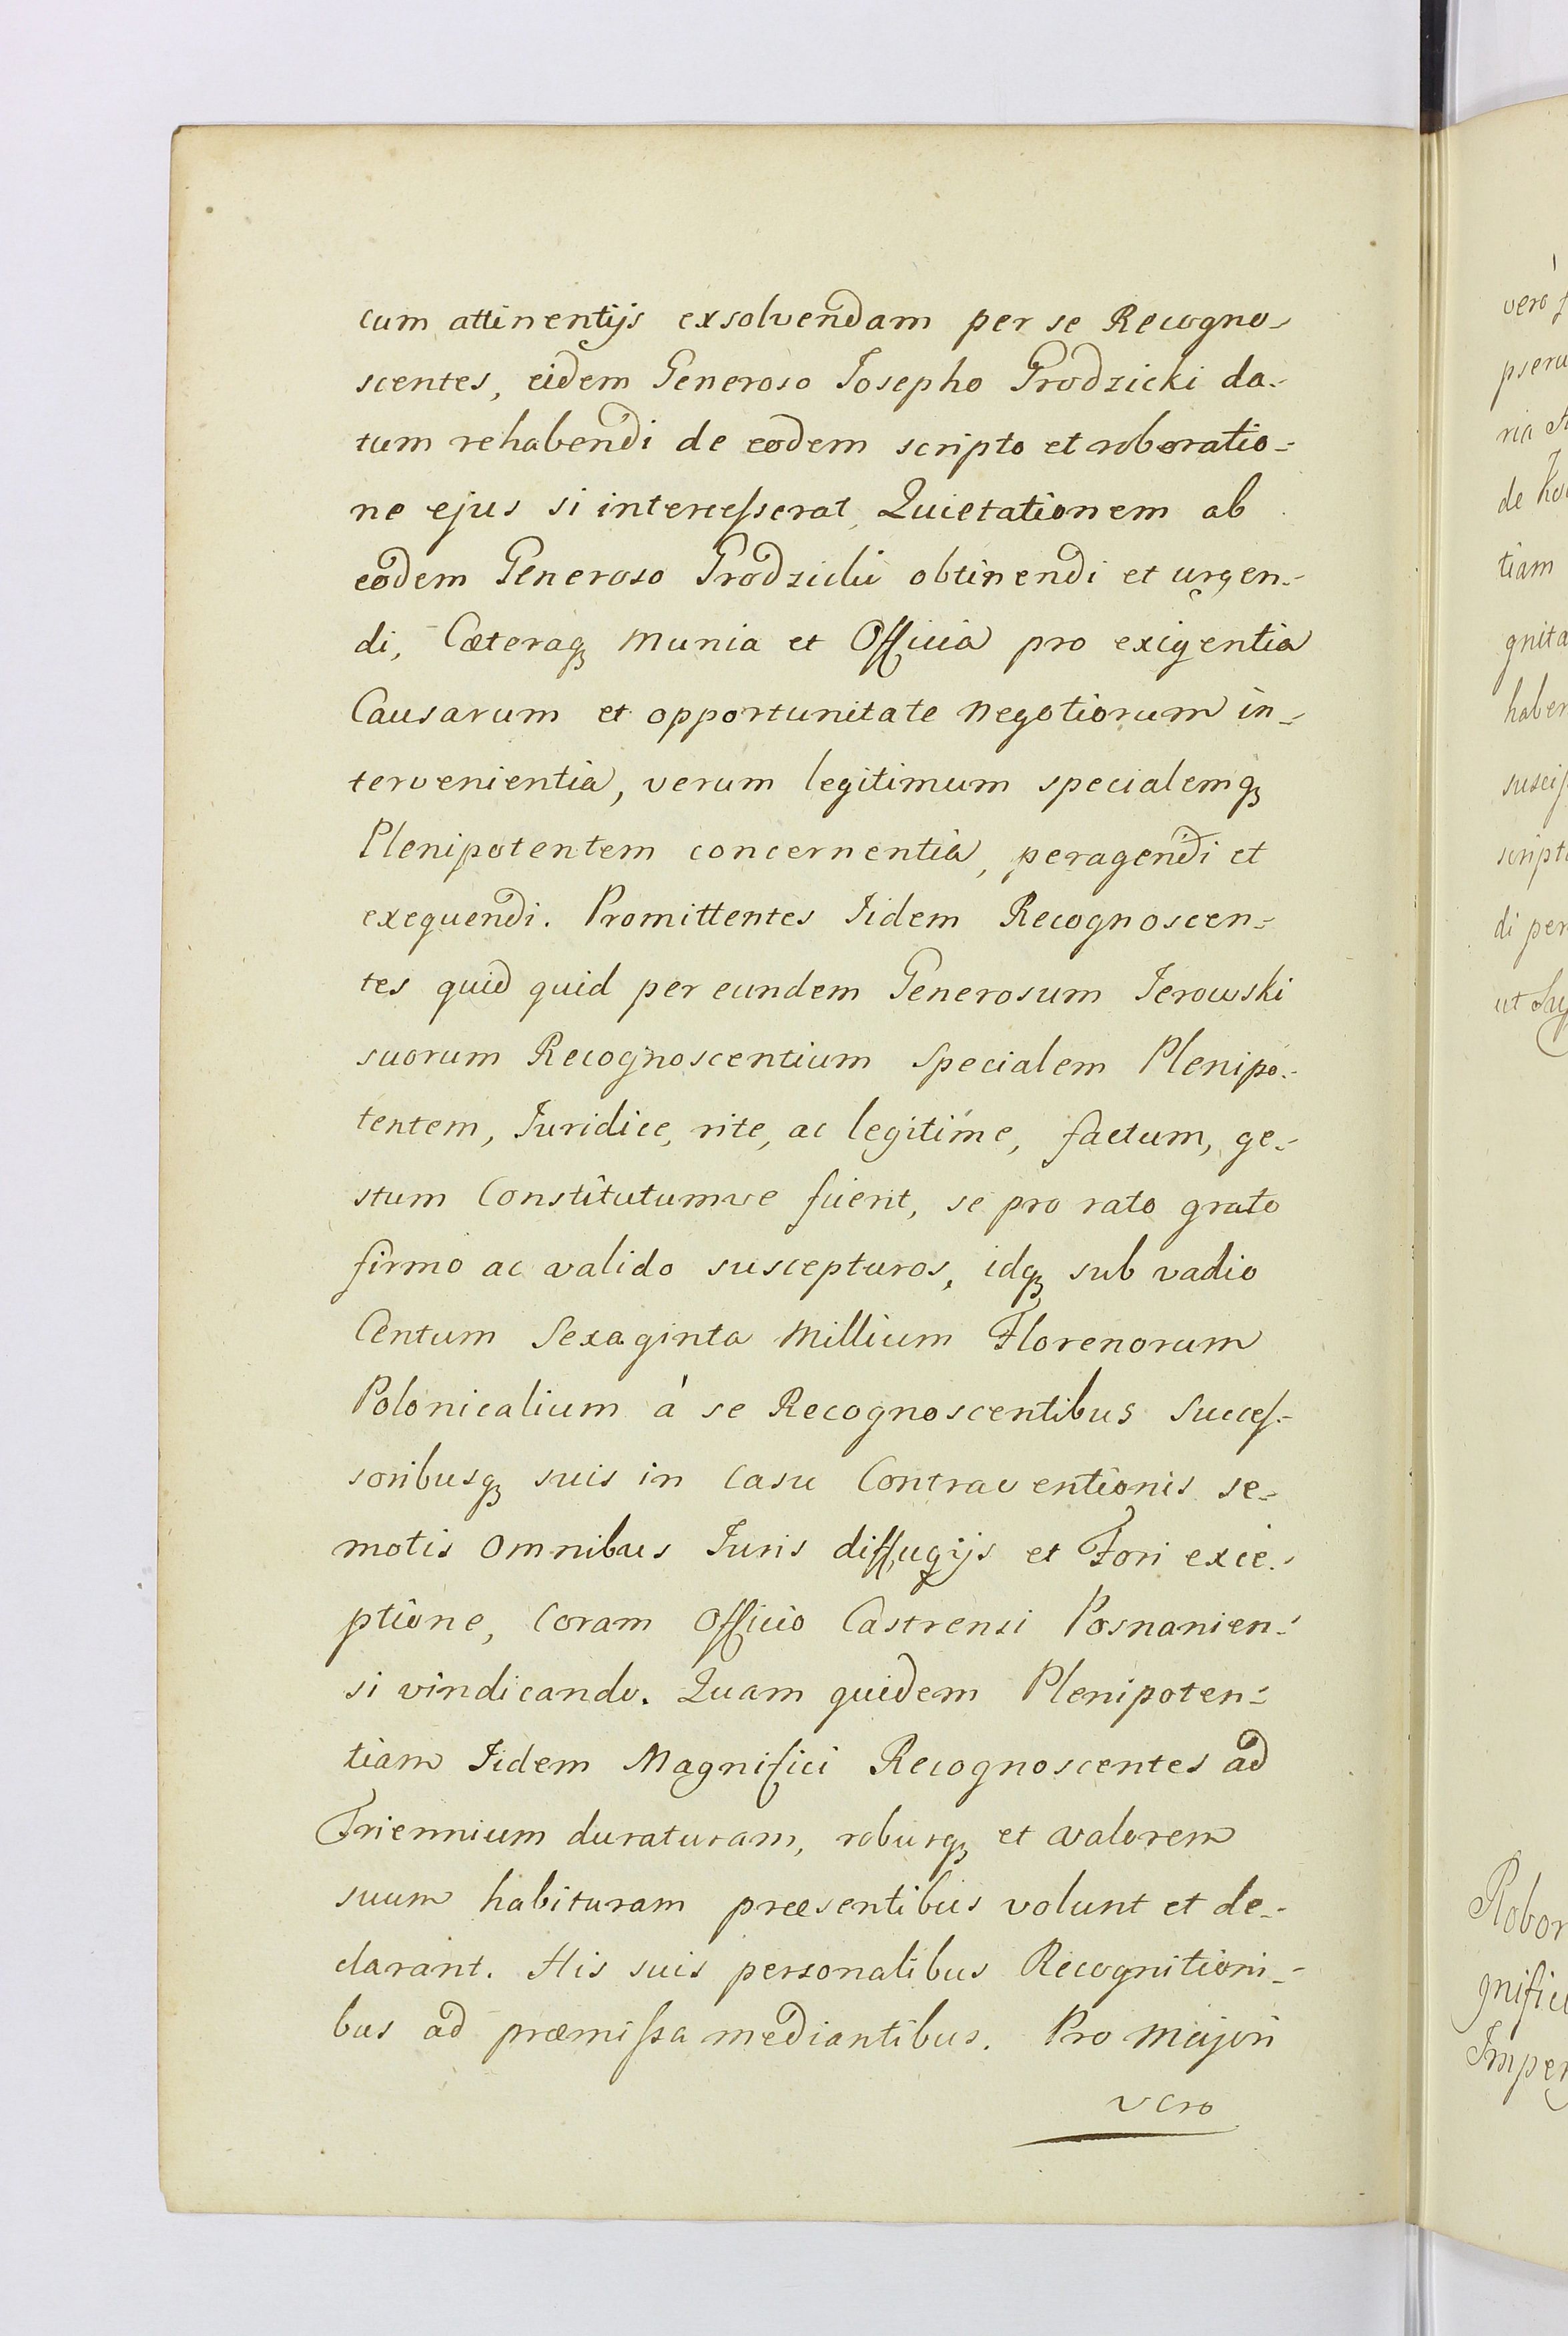 cum attinentijs exsolvendam per se Recogno-
scentes, eidem Generoso Josepho Grodzicki da-
tum rehabendi de eodem scripto et roboratio-
ne ejus si intercesserat, Quietationem ab
eodem Generoso Grodzicki obtinendi et urgen-
di, Cæteraq munia et Officia pro exigentia
Causarum et opportunitate negotiorum in-
tervenientia, verum legitimum specialemq
Plenipotentem concernentia, peragendi et
exequendi. Promittentes Iidem Recognoscen-
tes quid quid per eundem Generosum Jerowski
suorum Recognoscentium Specialem Plenipo-
tentem, Juridice, rite, ac legitime, factum, ge-
stum Constitutumve fuerit, se pro rato grato
firmo ac valido suscepturos, idq sub vadio
Centum Sexaginta Millium Florenorum
Polonicalium à se Recognoscentibus Succes-
soribusq suis in casu Contraventionis se-
motis omnibus Juris diffugijs et Fori exce-
ptione, Coram Officio Castrensi Posnanien-
si vindicando. Quam quidem Plenipoten-
tiam Iidem Magnifici Recognoscentes ad
Triennium duraturam, roburq et valorem
suum habituram præsentibus volunt et de-
clarant. His suis personalibus Recognitioni-
bus ad præmissa mediantibus. Pro majori
vero
verò
de
tiam
gnita
haber
di per
ut
Robor
gnific
Imper